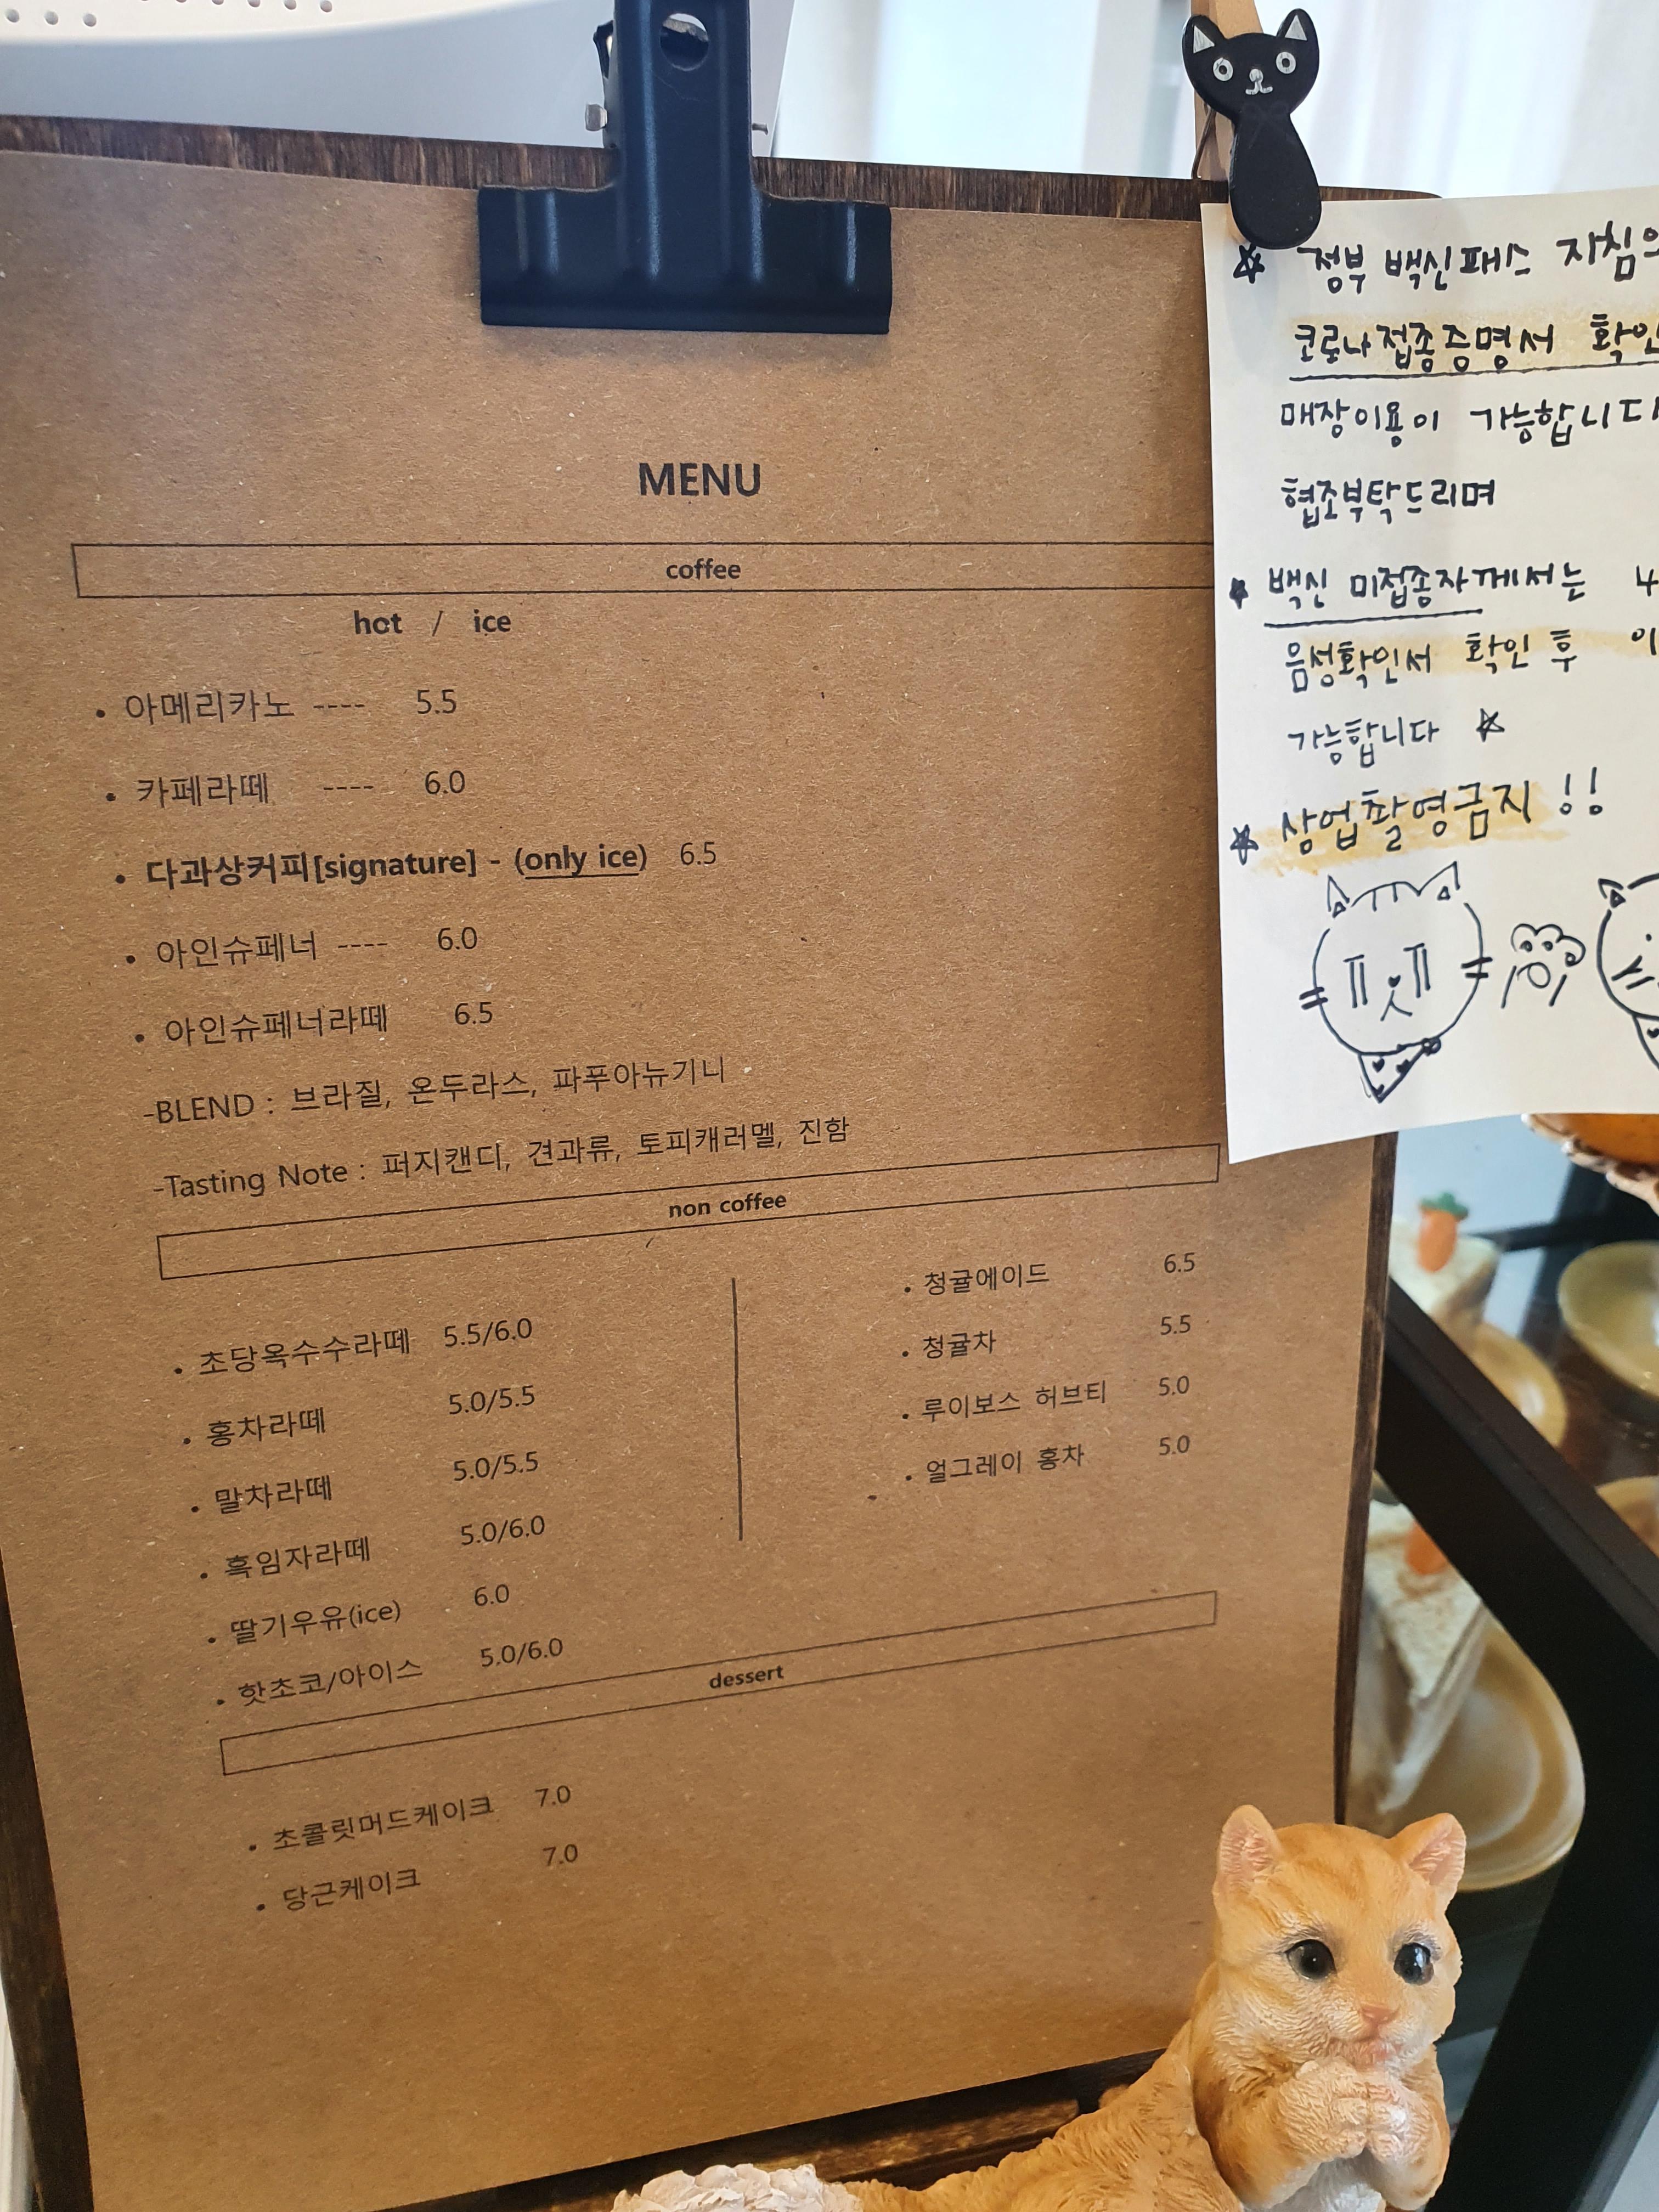 MENU
coffee
hot / ice
• 아메리카노 ---- 5.5
• 카페라떼 ---- 6.0
• 다과상커피[signature] - (only ice) 6.5
• 아인슈페너 ---- 6.0
• 아인슈페너라떼 6.5
-BLEND : 브라질, 온두라스, 파푸아뉴기니
-Tasting Note : 퍼지캔디, 견과류, 토피캐러멜, 진함
non coffee
• 초당옥수수라떼 5.5/6.0
• 홍차라떼 5.0/5.5
• 말차라떼 5.0/5.5
• 흑임자라떼 5.0/6.0
• 딸기우유(ice) 6.0
• 핫초코/아이스 5.0/6.0
• 청귤에이드 6.5
• 청귤차 5.5
• 루이보스 허브티 5.0
• 얼그레이 홍차 5.0
dessert
• 초콜릿머드케이크 7.0
• 당근케이크 7.0
☆ 정부 백신패스 지침
코로나접종증명서 확인
매장이용이 가능합니다
협조부탁드리며
★ 백신 미접종자께서는
음성확인서 확인 후
가능합니다 ☆
☆ 상업촬영금지 !!